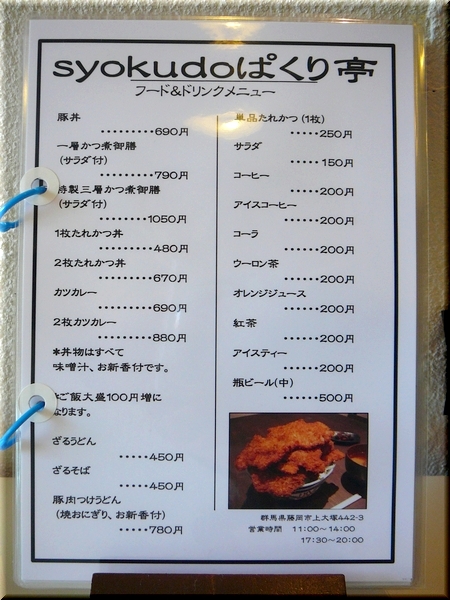 syokudoぱくり亭
フード&ドリンクメニュー
豚丼
・・・・・・・・・690円
一層かつ煮御膳
(サラダ付)
・・・・・・・・・790円
特製三層かつ煮御膳
(サラダ付)
・・・・・・・・1050円
1枚たれかつ丼
・・・・・・・・・480円
2枚たれかつ丼
・・・・・・・・・670円
カツカレー
・・・・・・・・・690円
2枚カツカレー
・・・・・・・・・880円
*丼物はすべて
味噌汁、お新香付です。
*ご飯大盛100円増に
なります。
ざるうどん
・・・・・450円
ざるそば
・・・・・450円
豚肉つけうどん
(焼おにぎり、お新香付)
・・・・・780円
単品たれかつ(1枚)
・・・・・250円
サラダ
・・・・・150円
コーヒー
・・・・・・200円
アイスコーヒー
・・・・・・200円
コーラ
・・・・・・200円
ウーロン茶
・・・・・・200円
オレンジジュース
・・・・・・200円
紅茶
・・・・・・200円
アイスティー
・・・・・・200円
瓶ビール(中)
・・・・・・500円
群馬県藤岡市上大塚442-3
営業時間 11:00~14:00
17:30~20:00